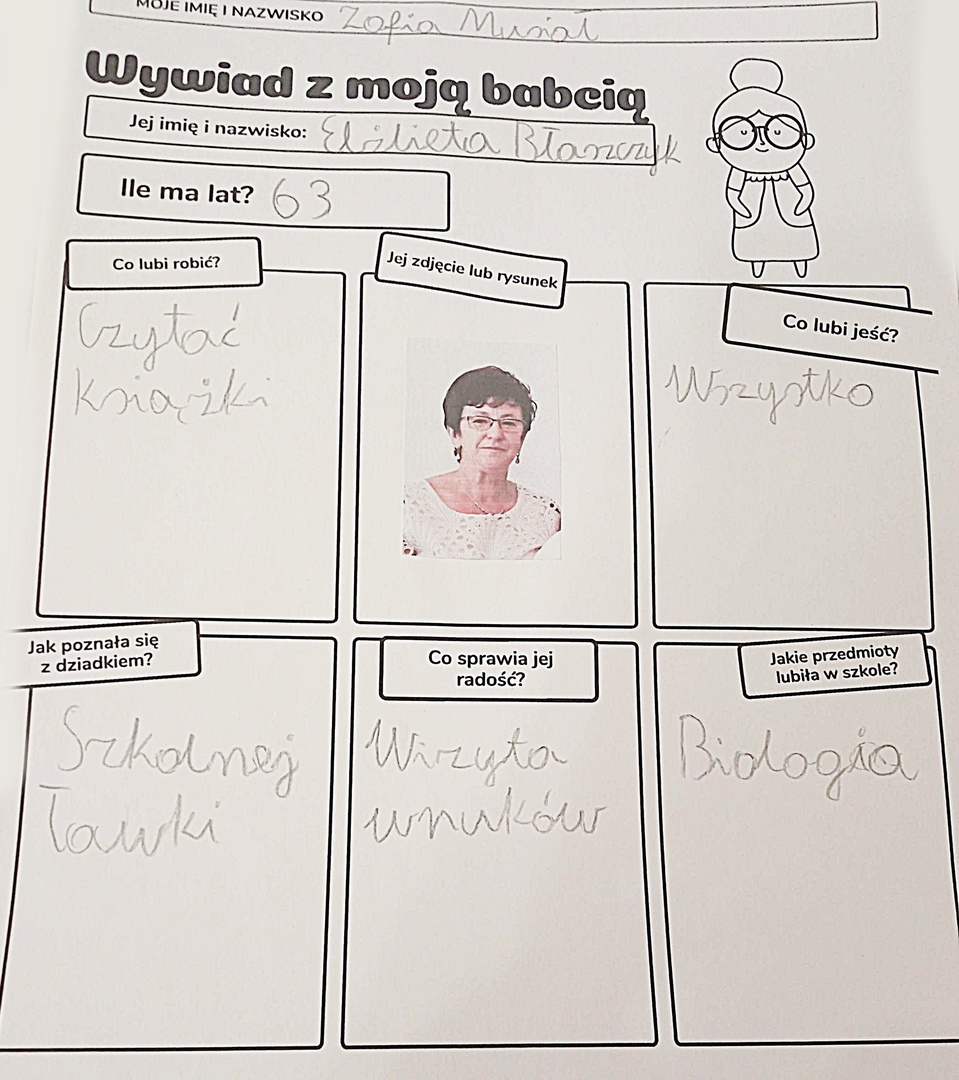 MOJE IMIĘ I NAZWISKO Zofia Musiał
Wywiad z moją babcią
Jej imię i nazwisko: Elżbieta Błaszczyk
Ile ma lat? 63
Co lubi robić?
Czytać
książki
Jej zdjęcie lub rysunek
Co lubi jeść?
Wszystko
Jak poznała się
z dziadkiem?
Szkolnej
Ławki
Co sprawia jej
radość?
Wizyta
wnuków
Jakie przedmioty
lubiła w szkole?
Biologia